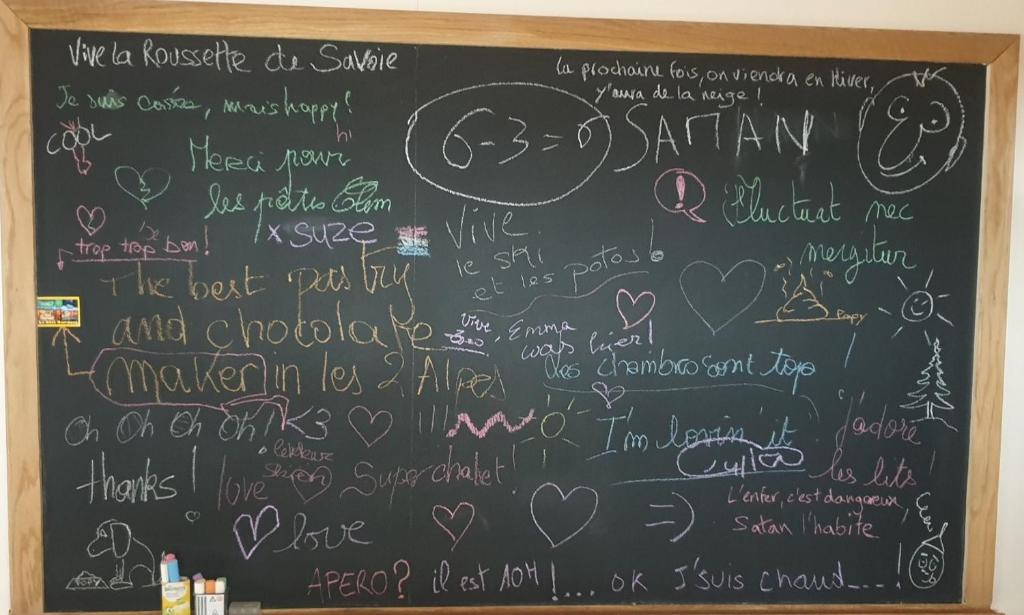 Vive la Roussette de Savoie
la prochaine fois, on viendra en Hiver,
y'aura de la neige !
Je suis cassée, mais happy !
hi
COOL
6-3=6
SATTAN
Merci pour
les pâtes
Fluctuat nec
mergitur
x SUZE
trop trop bon !
Vive
le ski
et les potos !
The best pastry
and chocolate
maker in les 2 Alpes
Vive
Emma
was hier !
Papy
les chambres sont top !
Oh Oh Oh Oh <3
I'm lovin' it
j'adore
les lits !
thanks !
love
Super chalet !
L'enfer, c'est dangereux,
Satan l'habite
love
=)
APERO ? il est 10H !... OK J'suis chaud---!